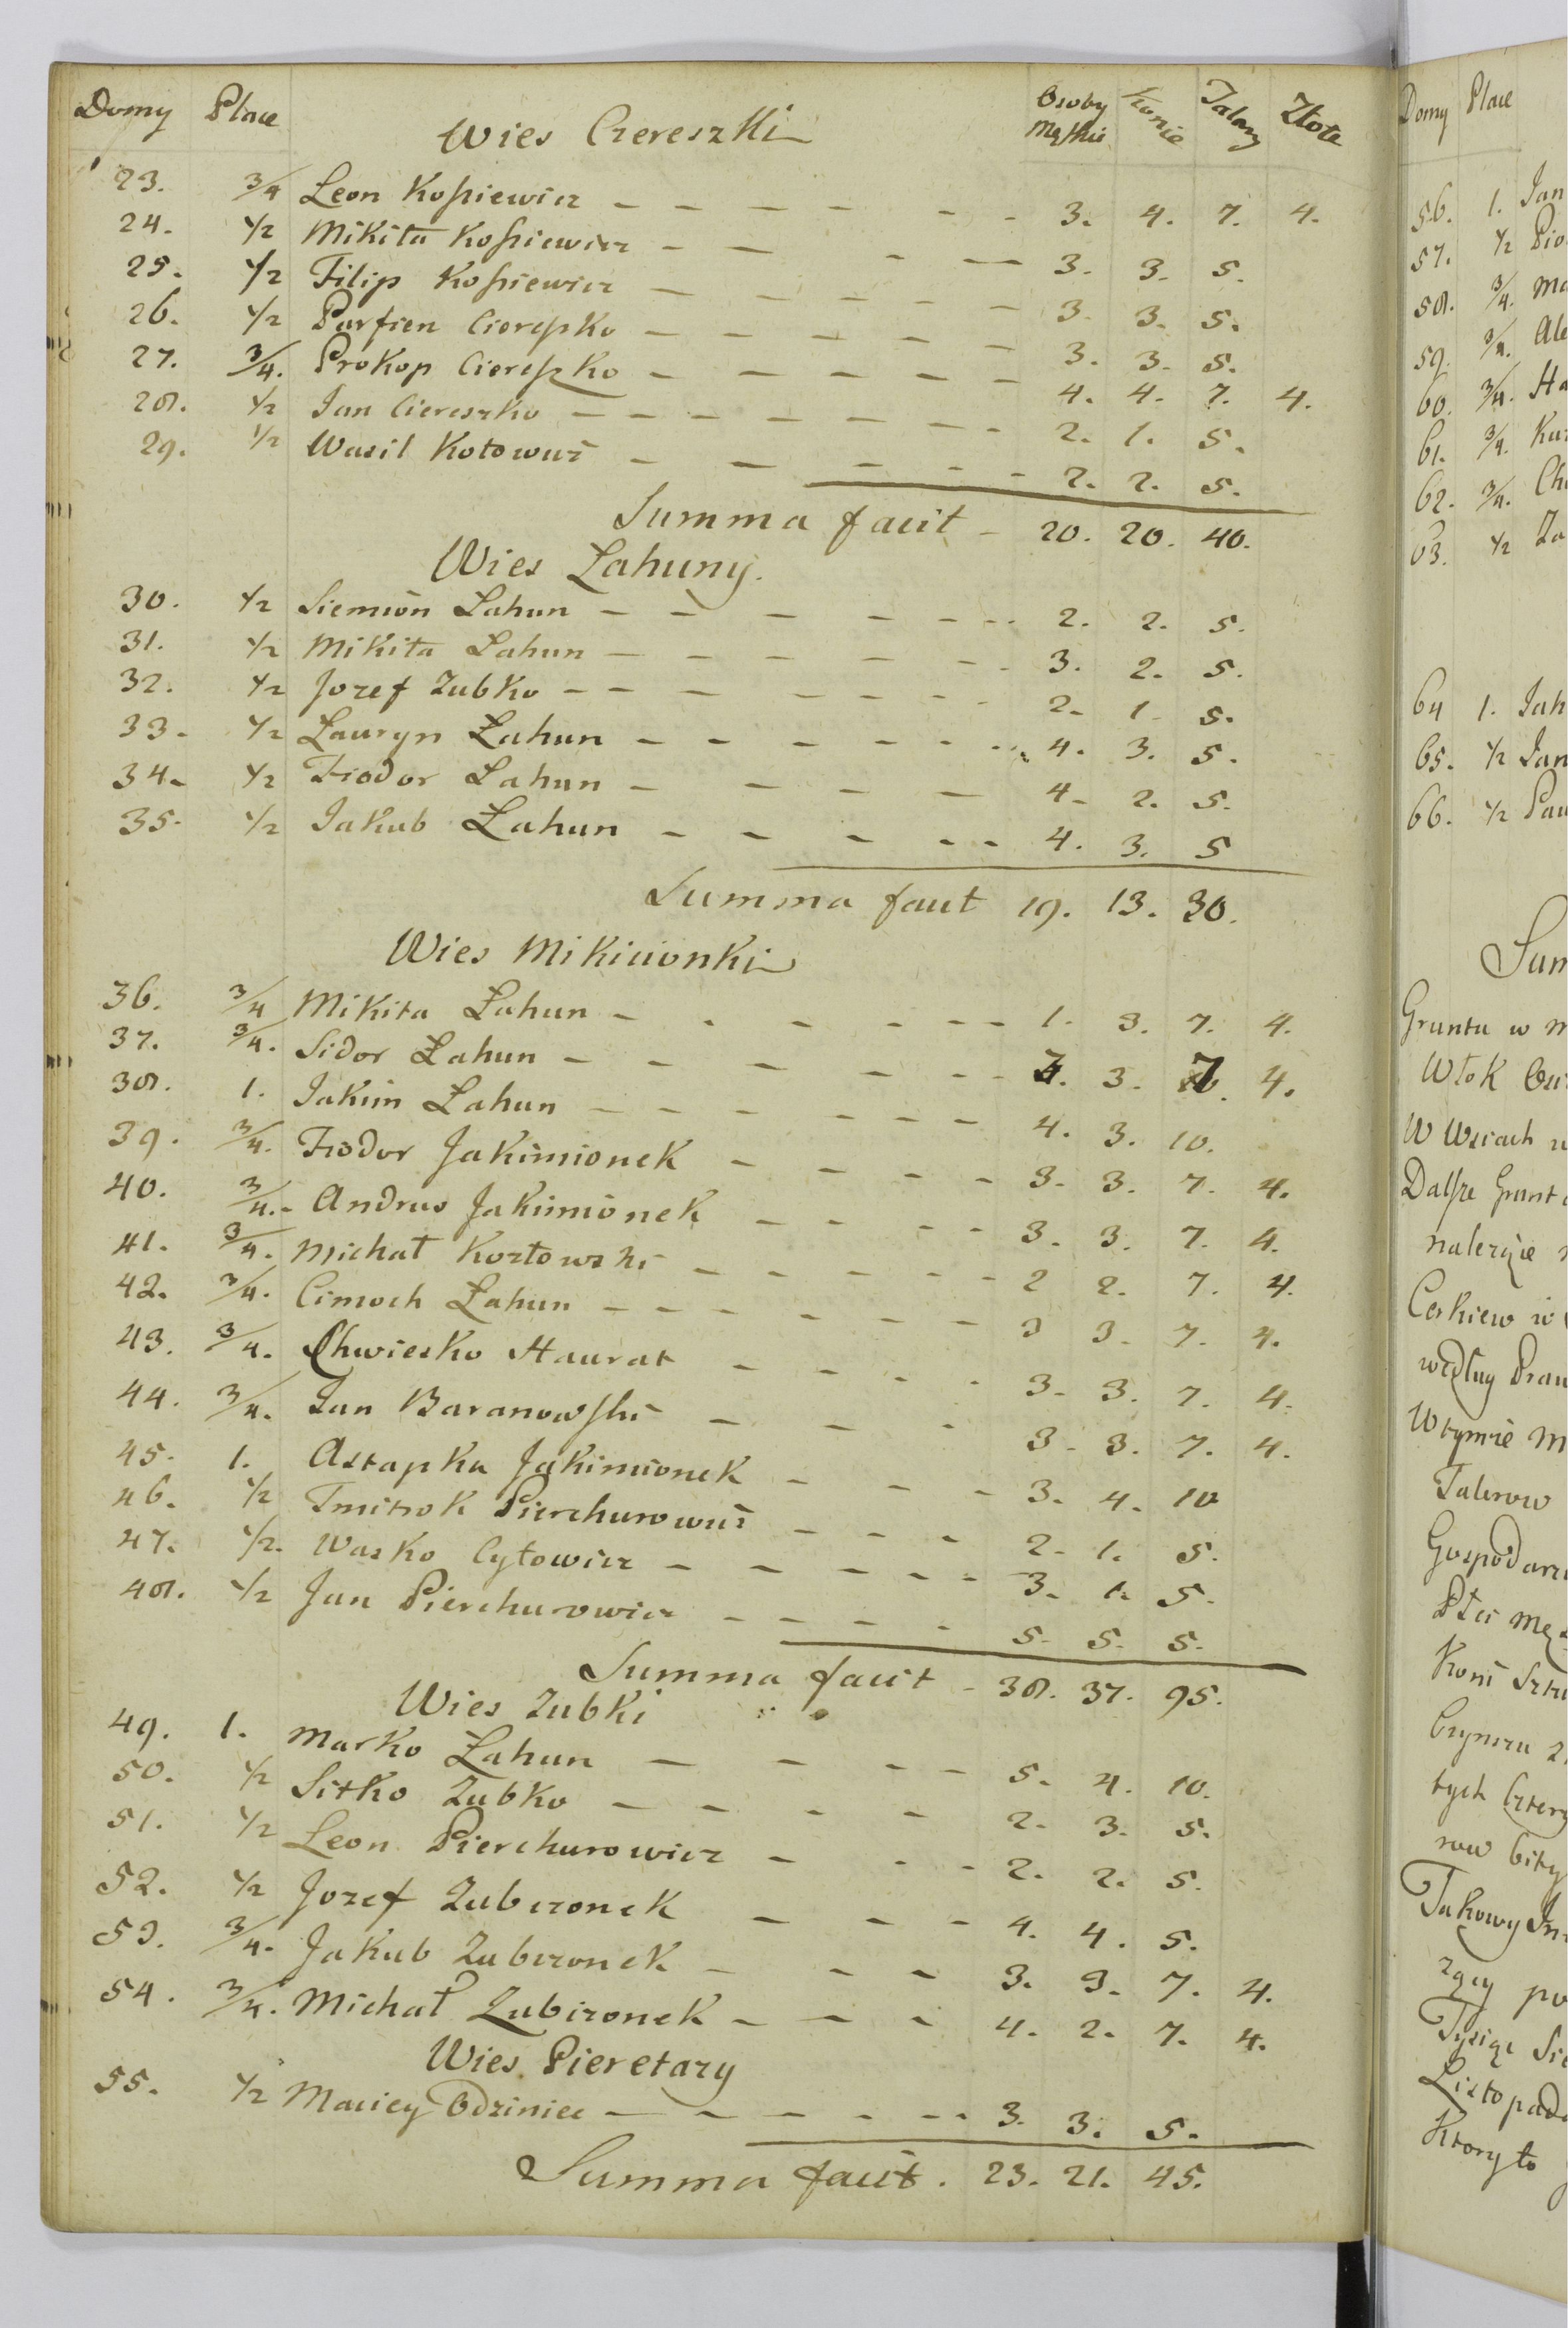 Domy Place Wies Czereszki Osoby Męskie Konie Talary Złote
23. 3/4 Leon Kossiewicz - - - - - - - 3. 4. 7. 4.
24. 1/2 Mikita Kossiewicz - - - - 3. 3. 5.
25. 1/2 Filip Kossiewicz - - - - - 3. 3. 5.
26. 1/2 Parfien Ciereszko - - - - - 3. 3. 5.
27. 3/4. Prokop Ciereszko - - - - - 4. 4. 7. 4.
28. 1/2 Jan Ciereszko - - - - - - - 2. 1. 5.
29. 1/2 Wasil Kotowicz - - - - - 2. 2. 5.
Summa facit - 20. 20. 40.
Wies Łahuny.
30. 1/2 Siemion Łahun - - - - - - 2. 2. 5.
31. 1/2 Mikita Łahun - - - - - - 3. 2. 5.
32. 1/2 Jozef Zubko - - - - - - - 2. 1. 5.
33. 1/2 Łauryn Łahun - - - - - - 4. 3. 5.
34. 1/2 Fiodor Łahun - - - - 4. 2. 5.
35. 1/2 Jakub Łahun - - - - - 4. 3. 5
Summa facit 19. 13. 30.
Wies Mikicionki
36. 3/4 Mikita Łahun - - - - - - 1. 3. 7. 4.
37. 3/4. Sidor Łahun - - - - - - 3. 7. 4.
38. 1. Jakim Łahun - - - - - - 4. 3. 10.
39. 3/4. Fiodor Jakimionek - - - - 3. 3. 7. 4.
40. 3/4. Andrus Jakimionek - - - - 3. 3. 7. 4.
41. 3/4. Michał Kozłowski - - - - - 2 2. 7. 4.
42. 3/4. Cimoch Łahun - - - - - - 3 3. 7. 4.
43. 3/4. Chwiesko Haurat - - - - 3. 3. 7. 4.
44. 3/4. Jan Baranowski - - - 3. 3. 7. 4.
45. 1. Astapka Jakimionek - - - 3. 4. 10
46. 1/2 Tmitrok Pierchurowicz - - - 2. 1. 5.
47. 1/2. Wasko Cytowicz - - - - - 3. 1. 5.
48. 1/2 Jan Pierchurowicz - - - - 5. 5. 5.
Summa facit - 38. 37. 95.
Wies Zubki
49. 1. Marko Łahun - - - - 5. 4. 10.
50. 1/2 Sitko Zubko - - - - 2. 3. 5.
51. 1/2 Leon Pierchurowicz - - - 2. 2. 5.
52. 1/2 Jozef Zubczonek - - - 4. 4. 5.
53. 3/4. Jakub Zubczonek - - - 3. 3. 7. 4.
54. 3/4. Michał Zubczonek - - - 4. 2. 7. 4.
Wies Pieretazy
55. 1/2 Maciey Odziniec - - - - - - 3. 3. 5.
Summa facit. 23. 21. 45.
Domy Place
56. 1. Jan
57. 1/2
58. 3/4.
59. 3/4.
60. 3/4.
61. 3/4.
62. 3/4.
63. 1/2
64 1.
65. 1/2 Jan
66. 1/2
Gruntu w
Włok
W Wsiach
Dalsze Grunt
należące
Cerkiew
według
Wtymże
Talerow
Koni
tych
Takowy
Ktory to